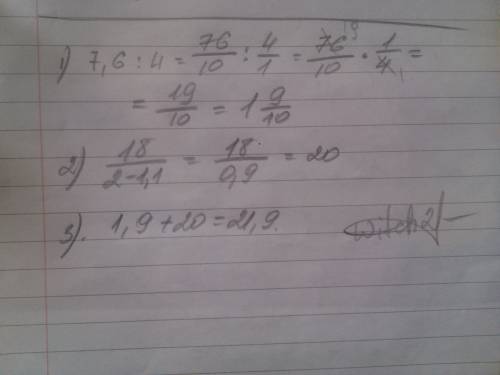 1) 7,6 : 4 = 76/10 : 4/1 = 76 19/10 · 1/4 1 =
= 19/10 = 1 9/10
2) 18/2-1,1 = 18/0,9 = 20
3). 1,9 + 20 = 21,9.